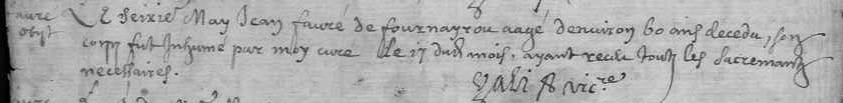 favre Le seixie May Jean favré de fournayrou aagé denviron 60 ans deceda, son
obyt corps fut Inhumé par moy curé le 17 dud mois, ayant receu touts les sacremants
necessaires.
vicre